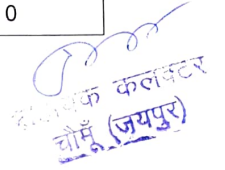 0
कलक्टर
चौमूँ (जयपुर)